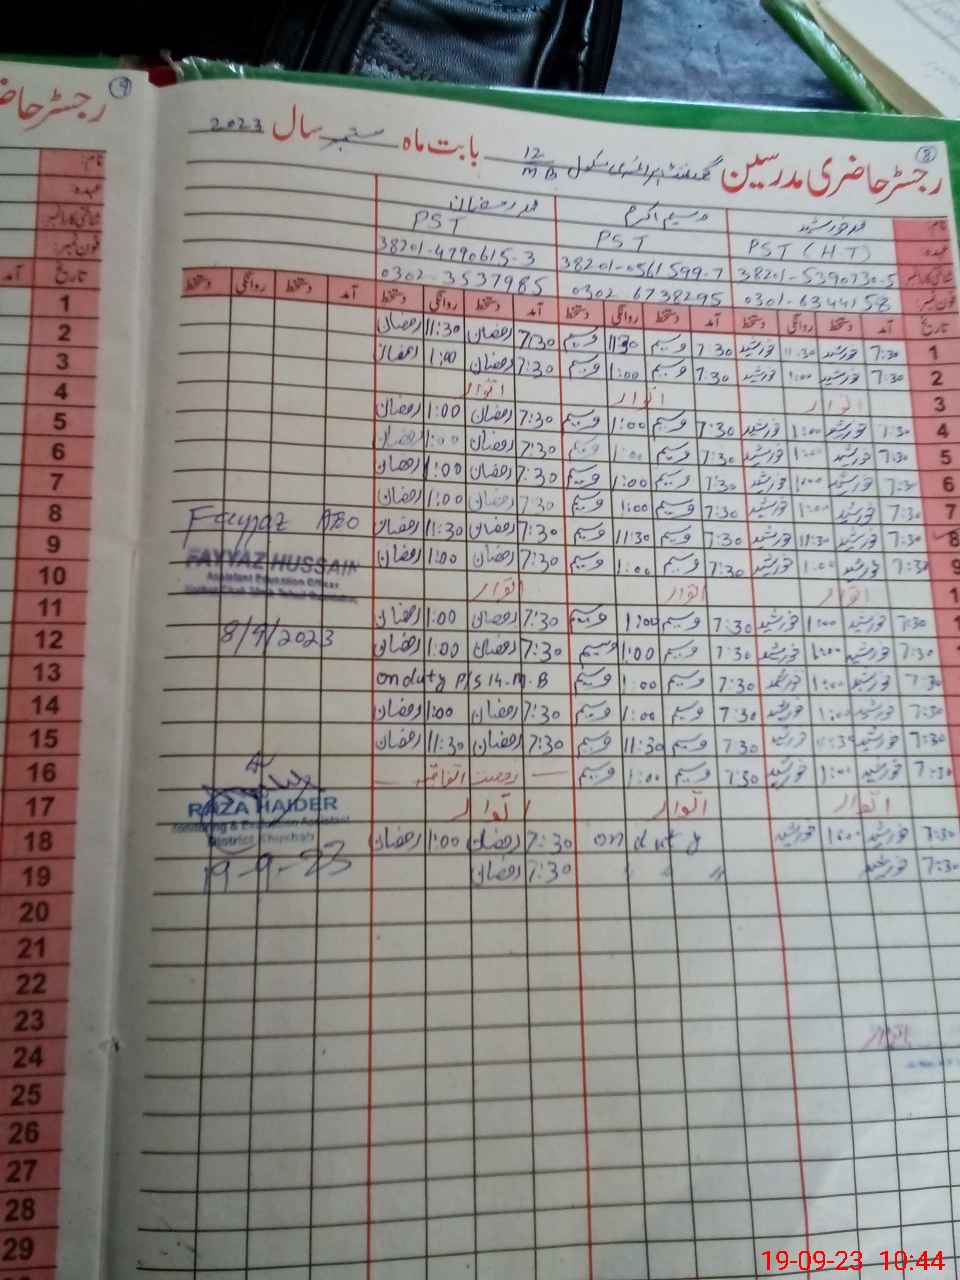 رجسٹر حاضری مدرسین گورنمنٹ پرائمری سکول 12 M B بابت ماہ ستمبر سال 2023
8
9
رجسٹر حاضری
نام: محمد خورشید وسیم اکرم محمد رمضان
عہدہ PST (H-T) PST PST
شناختی کارڈ نمبر 38201-5390730-5 38201-0561599-7 38201-4790615-3
فون نمبر: 0301-6344158 0302 6738295 0302-3537985
تاریخ آمد دستخط روانگی دستخط آمد دستخط روانگی دستخط آمد دستخط روانگی دستخط آمد دستخط روانگی دستخط
1 7:30 خورشید 11:30 خورشید 7:30 وسیم 11:30 وسیم 7:30 رمضان 11:30 رمضان
2 7:30 خورشید 1:00 خورشید 7:30 وسیم 1:00 وسیم 7:30 رمضان 1:00 رمضان
3 اتوار اتوار اتوار
4 7:30 خورشید 1:00 خورشید 7:30 وسیم 1:00 وسیم 7:30 رمضان 1:00 رمضان
5 7:30 خورشید 1:00 خورشید 7:30 وسیم 1:00 وسیم 7:30 رمضان 1:00 رمضان
6 7:30 خورشید 1:00 خورشید 7:30 وسیم 1:00 وسیم 7:30 رمضان 1:00 رمضان
7 7:30 خورشید 1:00 خورشید 7:30 وسیم 1:00 وسیم 7:30 رمضان 1:00 رمضان
8 7:30 خورشید 11:30 خورشید 7:30 وسیم 11:30 وسیم 7:30 رمضان 11:30 رمضان
9 7:30 خورشید 1:00 خورشید 7:30 وسیم 1:00 وسیم 7:30 رمضان 1:00 رمضان
1 اتوار اتوار اتوار
7:30 خورشید 1:00 خورشید 7:30 وسیم 1:00 وسیم 7:30 رمضان 1:00 رمضان
7:30 خورشید 1:00 خورشید 7:30 وسیم 1:00 وسیم 7:30 رمضان 1:00 رمضان
7:30 خورشید 1:00 خورشید 7:30 وسیم 1:00 وسیم on duty P/S 14-M-B
7:30 خورشید 1:00 خورشید 7:30 وسیم 1:00 وسیم 7:30 رمضان 1:00 رمضان
7:30 خورشید 11:30 خورشید 7:30 وسیم 11:30 وسیم 7:30 رمضان 11:30 رمضان
7:30 خورشید 1:00 خورشید 7:30 وسیم 1:00 وسیم — رخصت اتفاقیہ —
اتوار اتوار اتوار
7:30 خورشید 1:00 خورشید on duty 7:30 رمضان 1:00 رمضان
7:30 خورشید 〃 〃 〃 7:30 رمضان
Fayyaz AEO
FAYYAZ HUSSAIN
Assistant Education Officer
8/9/2023
RAZA HAIDER
Monitoring & Evaluation Assistant
District Khushab
19-9-23
اتوار
نام:
عہدہ
شناختی کارڈ نمبر
فون نمبر:
تاریخ آمد
1
2
3
4
5
6
7
8
9
10
11
12
13
14
15
16
17
18
19
20
21
22
23
24
25
26
27
28
29
19-09-23 10:44